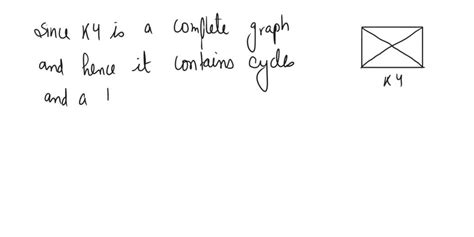 since K4 is a complete graph
and hence it contains cycles
and a
K4